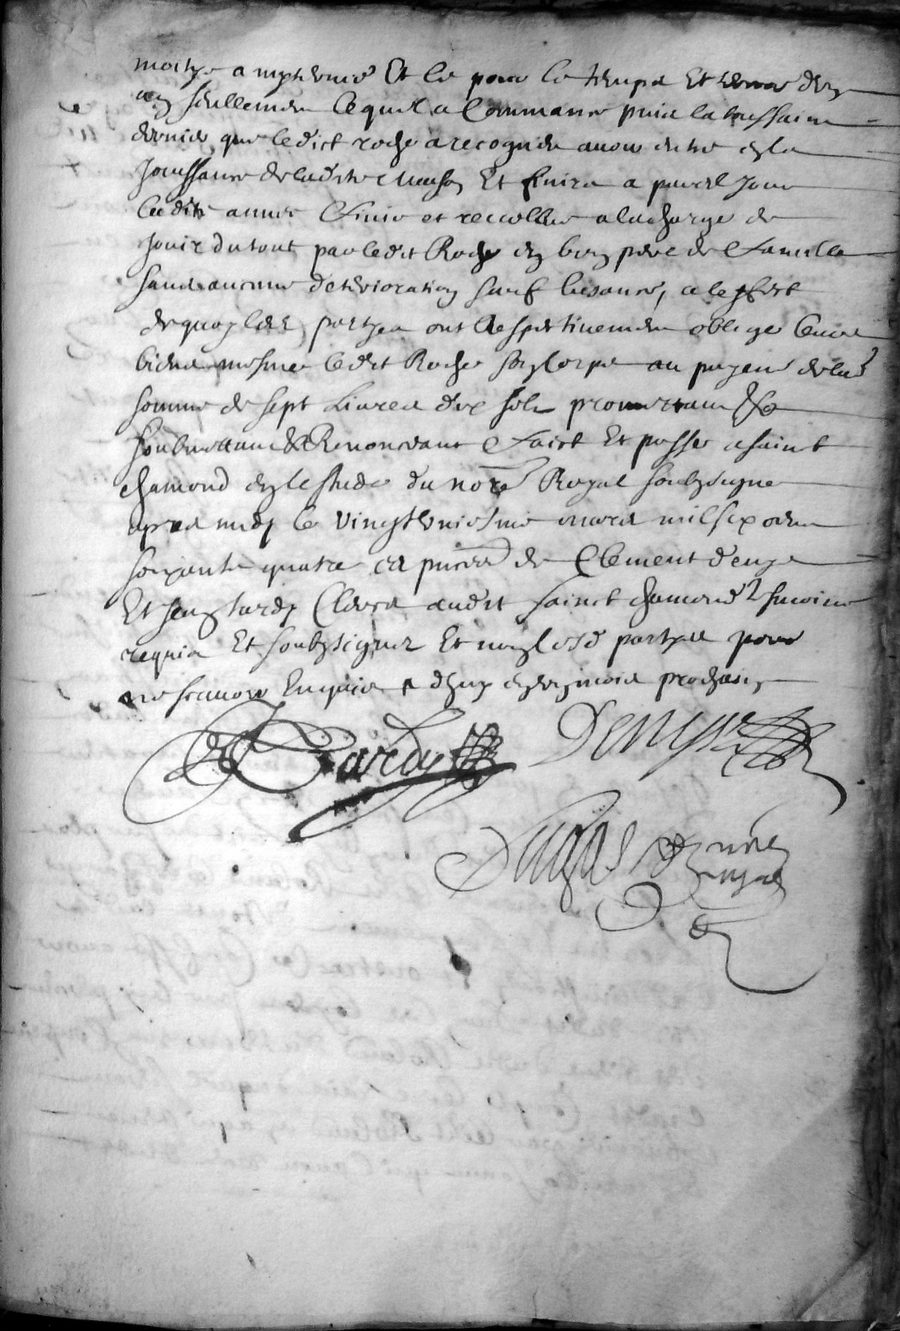 moitye Et ce pour le temps Et terme d'un
an seullement lequel a Commancé puis la toussainct
dernier que ledict roche a recogneu avoir entré en la
Jouissance de ladite maison Et finira a pareil Jour
ladite année finie et revollue a la charge de
Jouir du tout par ledit Roche en bon pere de famille
sans aucune deterioration sauf l'usance, a l'effect
dequoy lesd partyes ont Respectivement obligé leurs
biens mesme ledit Roche son corps au payement de lad
somme de sept Livres dix solz promettant &c
soubmettant &c Renonceant Faict Et passé a sainct
chamond en l'estude du no.re Royal soubzsigné
apres midy le vingt mars mil six cens
soixante quatre es pnces de Clement Denys
Et Jean tardy Clercs audit sainct chamond tesmoins
requis Et soubzsignez Et non lesd partyes pour
ne scavoir Enquis prochain
Tardy Denys
Dugas no.re
royal